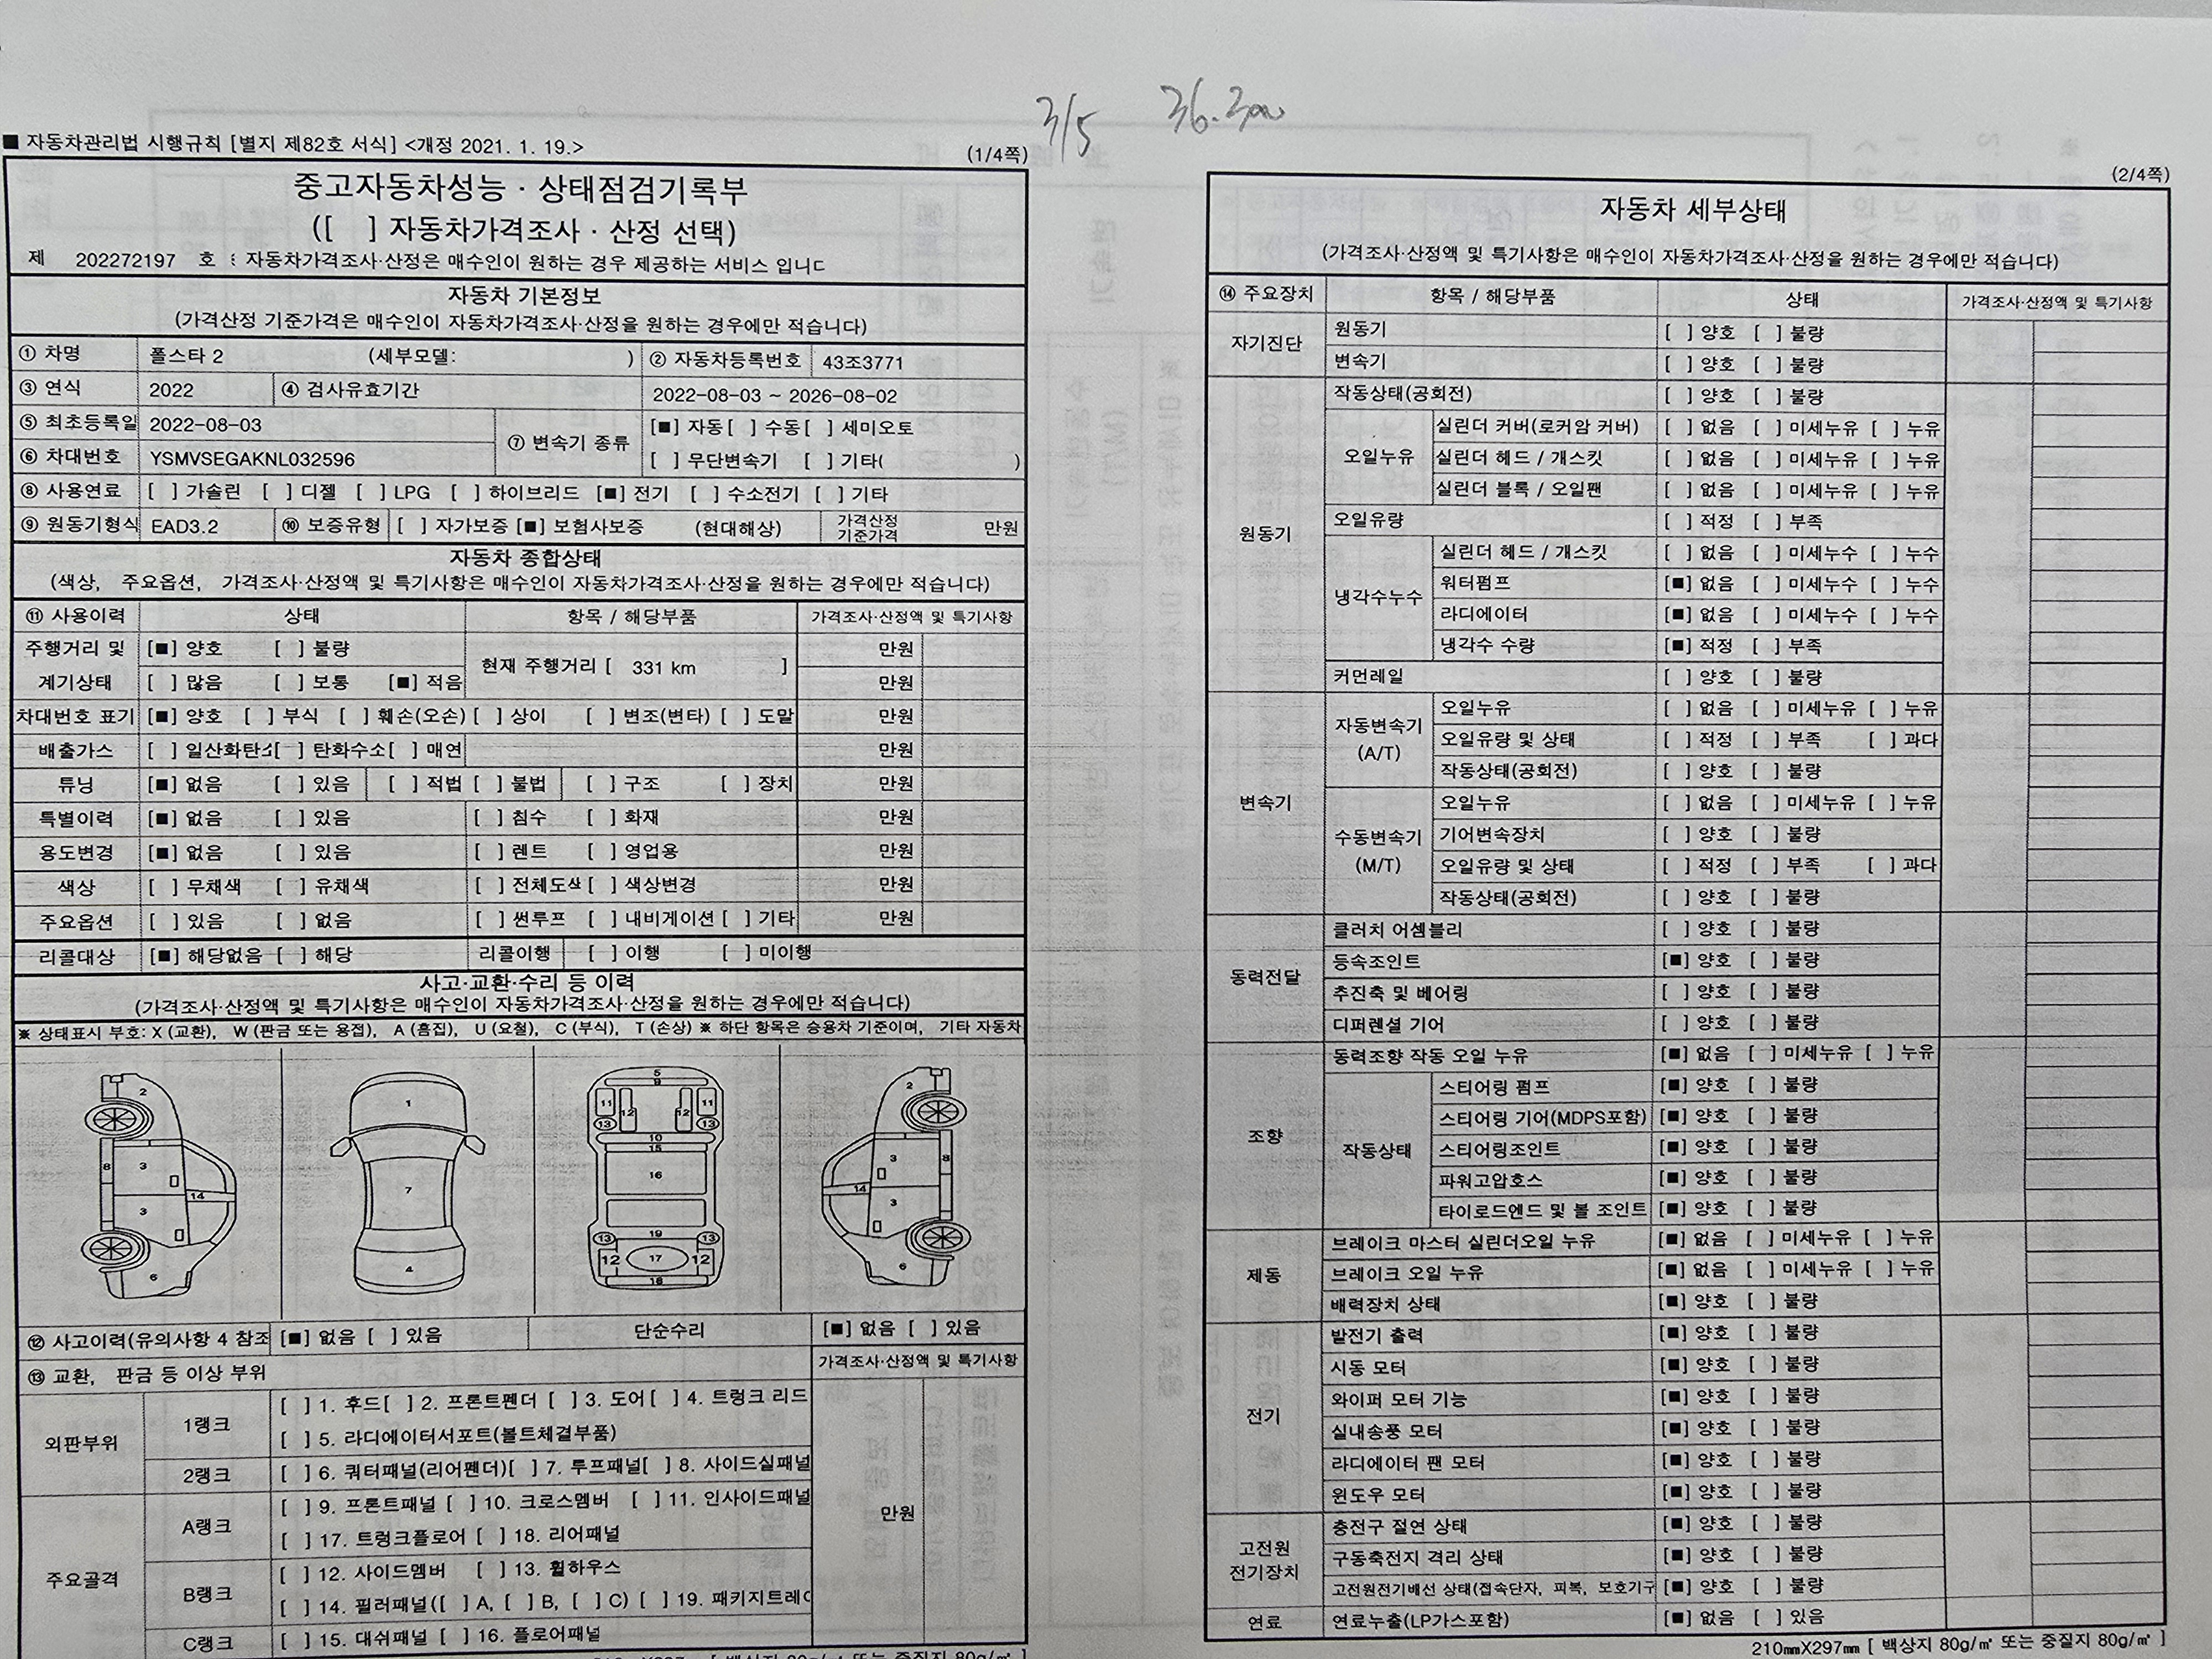 3/5 36.300
■ 자동차관리법 시행규칙 [별지 제82호 서식] <개정 2021. 1. 19.>
(1/4쪽)
중고자동차성능 · 상태점검기록부
([ ] 자동차가격조사 · 산정 선택)
제 202272197 호 자동차가격조사·산정은 매수인이 원하는 경우 제공하는 서비스 입니
자동차 기본정보
(가격산정 기준가격은 매수인이 자동차가격조사·산정을 원하는 경우에만 적습니다)
① 차명 폴스타 2 (세부모델: ) ② 자동차등록번호 43조3771
③ 연식 2022 ④ 검사유효기간 2022-08-03 ~ 2026-08-02
⑤ 최초등록일 2022-08-03 ⑦ 변속기 종류 [■] 자동 [ ] 수동 [ ] 세미오토
⑥ 차대번호 YSMVSEGAKNL032596 [ ] 무단변속기 [ ] 기타( )
⑧ 사용연료 [ ] 가솔린 [ ] 디젤 [ ] LPG [ ] 하이브리드 [■] 전기 [ ] 수소전기 [ ] 기타
⑨ 원동기형식 EAD3.2 ⑩ 보증유형 [ ] 자가보증 [■] 보험사보증 (현대해상) 가격산정 기준가격 만원
자동차 종합상태
(색상, 주요옵션, 가격조사·산정액 및 특기사항은 매수인이 자동차가격조사·산정을 원하는 경우에만 적습니다)
⑪ 사용이력 상태 항목 / 해당부품 가격조사·산정액 및 특기사항
주행거리 및 [■] 양호 [ ] 불량 현재 주행거리 [ 331 km ] 만원
계기상태 [ ] 많음 [ ] 보통 [■] 적음 만원
차대번호 표기 [■] 양호 [ ] 부식 [ ] 훼손(오손) [ ] 상이 [ ] 변조(변타) [ ] 도말 만원
배출가스 [ ] 일산화탄소 [ ] 탄화수소 [ ] 매연 만원
튜닝 [■] 없음 [ ] 있음 [ ] 적법 [ ] 불법 [ ] 구조 [ ] 장치 만원
특별이력 [■] 없음 [ ] 있음 [ ] 침수 [ ] 화재 만원
용도변경 [■] 없음 [ ] 있음 [ ] 렌트 [ ] 영업용 만원
색상 [ ] 무채색 [ ] 유채색 [ ] 전체도색 [ ] 색상변경 만원
주요옵션 [ ] 있음 [ ] 없음 [ ] 썬루프 [ ] 내비게이션 [ ] 기타 만원
리콜대상 [■] 해당없음 [ ] 해당 리콜이행 [ ] 이행 [ ] 미이행
사고·교환·수리 등 이력
(가격조사·산정액 및 특기사항은 매수인이 자동차가격조사·산정을 원하는 경우에만 적습니다)
※ 상태표시 부호: X (교환), W (판금 또는 용접), A (흠집), U (요철), C (부식), T (손상) ※ 하단 항목은 승용차 기준이며, 기타 자동차
2 8 3 14 3 6
1 7 4
5 9 11 12 12 11 13 13 10 15 16 19 13 13 12 17 12 18
2 3 8 14 3 6
⑫ 사고이력(유의사항 4 참조 [■] 없음 [ ] 있음 단순수리 [■] 없음 [ ] 있음
⑬ 교환, 판금 등 이상 부위 가격조사·산정액 및 특기사항
외판부위 1랭크 [ ] 1. 후드 [ ] 2. 프론트펜더 [ ] 3. 도어 [ ] 4. 트렁크 리드
[ ] 5. 라디에이터서포트(볼트체결부품)
2랭크 [ ] 6. 쿼터패널(리어펜더) [ ] 7. 루프패널 [ ] 8. 사이드실패널
주요골격 A랭크 [ ] 9. 프론트패널 [ ] 10. 크로스멤버 [ ] 11. 인사이드패널
[ ] 17. 트렁크플로어 [ ] 18. 리어패널 만원
B랭크 [ ] 12. 사이드멤버 [ ] 13. 휠하우스
[ ] 14. 필러패널([ ] A, [ ] B, [ ] C) [ ] 19. 패키지트레이
C랭크 [ ] 15. 대쉬패널 [ ] 16. 플로어패널
[ 백상지 80g/㎡ 또는 중질지 80g/㎡ ]
(2/4쪽)
자동차 세부상태
(가격조사·산정액 및 특기사항은 매수인이 자동차가격조사·산정을 원하는 경우에만 적습니다)
⑭ 주요장치 항목 / 해당부품 상태 가격조사·산정액 및 특기사항
자기진단 원동기 [ ] 양호 [ ] 불량
변속기 [ ] 양호 [ ] 불량
원동기 작동상태(공회전) [ ] 양호 [ ] 불량
오일누유 실린더 커버(로커암 커버) [ ] 없음 [ ] 미세누유 [ ] 누유
실린더 헤드 / 개스킷 [ ] 없음 [ ] 미세누유 [ ] 누유
실린더 블록 / 오일팬 [ ] 없음 [ ] 미세누유 [ ] 누유
오일유량 [ ] 적정 [ ] 부족
냉각수누수 실린더 헤드 / 개스킷 [ ] 없음 [ ] 미세누수 [ ] 누수
워터펌프 [■] 없음 [ ] 미세누수 [ ] 누수
라디에이터 [■] 없음 [ ] 미세누수 [ ] 누수
냉각수 수량 [■] 적정 [ ] 부족
커먼레일 [ ] 양호 [ ] 불량
변속기 자동변속기 (A/T) 오일누유 [ ] 없음 [ ] 미세누유 [ ] 누유
오일유량 및 상태 [ ] 적정 [ ] 부족 [ ] 과다
작동상태(공회전) [ ] 양호 [ ] 불량
수동변속기 (M/T) 오일누유 [ ] 없음 [ ] 미세누유 [ ] 누유
기어변속장치 [ ] 양호 [ ] 불량
오일유량 및 상태 [ ] 적정 [ ] 부족 [ ] 과다
작동상태(공회전) [ ] 양호 [ ] 불량
동력전달 클러치 어셈블리 [ ] 양호 [ ] 불량
등속조인트 [■] 양호 [ ] 불량
추진축 및 베어링 [ ] 양호 [ ] 불량
디퍼렌셜 기어 [ ] 양호 [ ] 불량
조향 동력조향 작동 오일 누유 [■] 없음 [ ] 미세누유 [ ] 누유
작동상태 스티어링 펌프 [■] 양호 [ ] 불량
스티어링 기어(MDPS포함) [■] 양호 [ ] 불량
스티어링조인트 [■] 양호 [ ] 불량
파워고압호스 [■] 양호 [ ] 불량
타이로드엔드 및 볼 조인트 [■] 양호 [ ] 불량
제동 브레이크 마스터 실린더오일 누유 [■] 없음 [ ] 미세누유 [ ] 누유
브레이크 오일 누유 [■] 없음 [ ] 미세누유 [ ] 누유
배력장치 상태 [■] 양호 [ ] 불량
전기 발전기 출력 [■] 양호 [ ] 불량
시동 모터 [■] 양호 [ ] 불량
와이퍼 모터 기능 [■] 양호 [ ] 불량
실내송풍 모터 [■] 양호 [ ] 불량
라디에이터 팬 모터 [■] 양호 [ ] 불량
윈도우 모터 [■] 양호 [ ] 불량
고전원 전기장치 충전구 절연 상태 [■] 양호 [ ] 불량
구동축전지 격리 상태 [■] 양호 [ ] 불량
고전원전기배선 상태(접속단자, 피복, 보호기구 [■] 양호 [ ] 불량
연료 연료누출(LP가스포함) [■] 없음 [ ] 있음
210㎜X297㎜ [ 백상지 80g/㎡ 또는 중질지 80g/㎡ ]